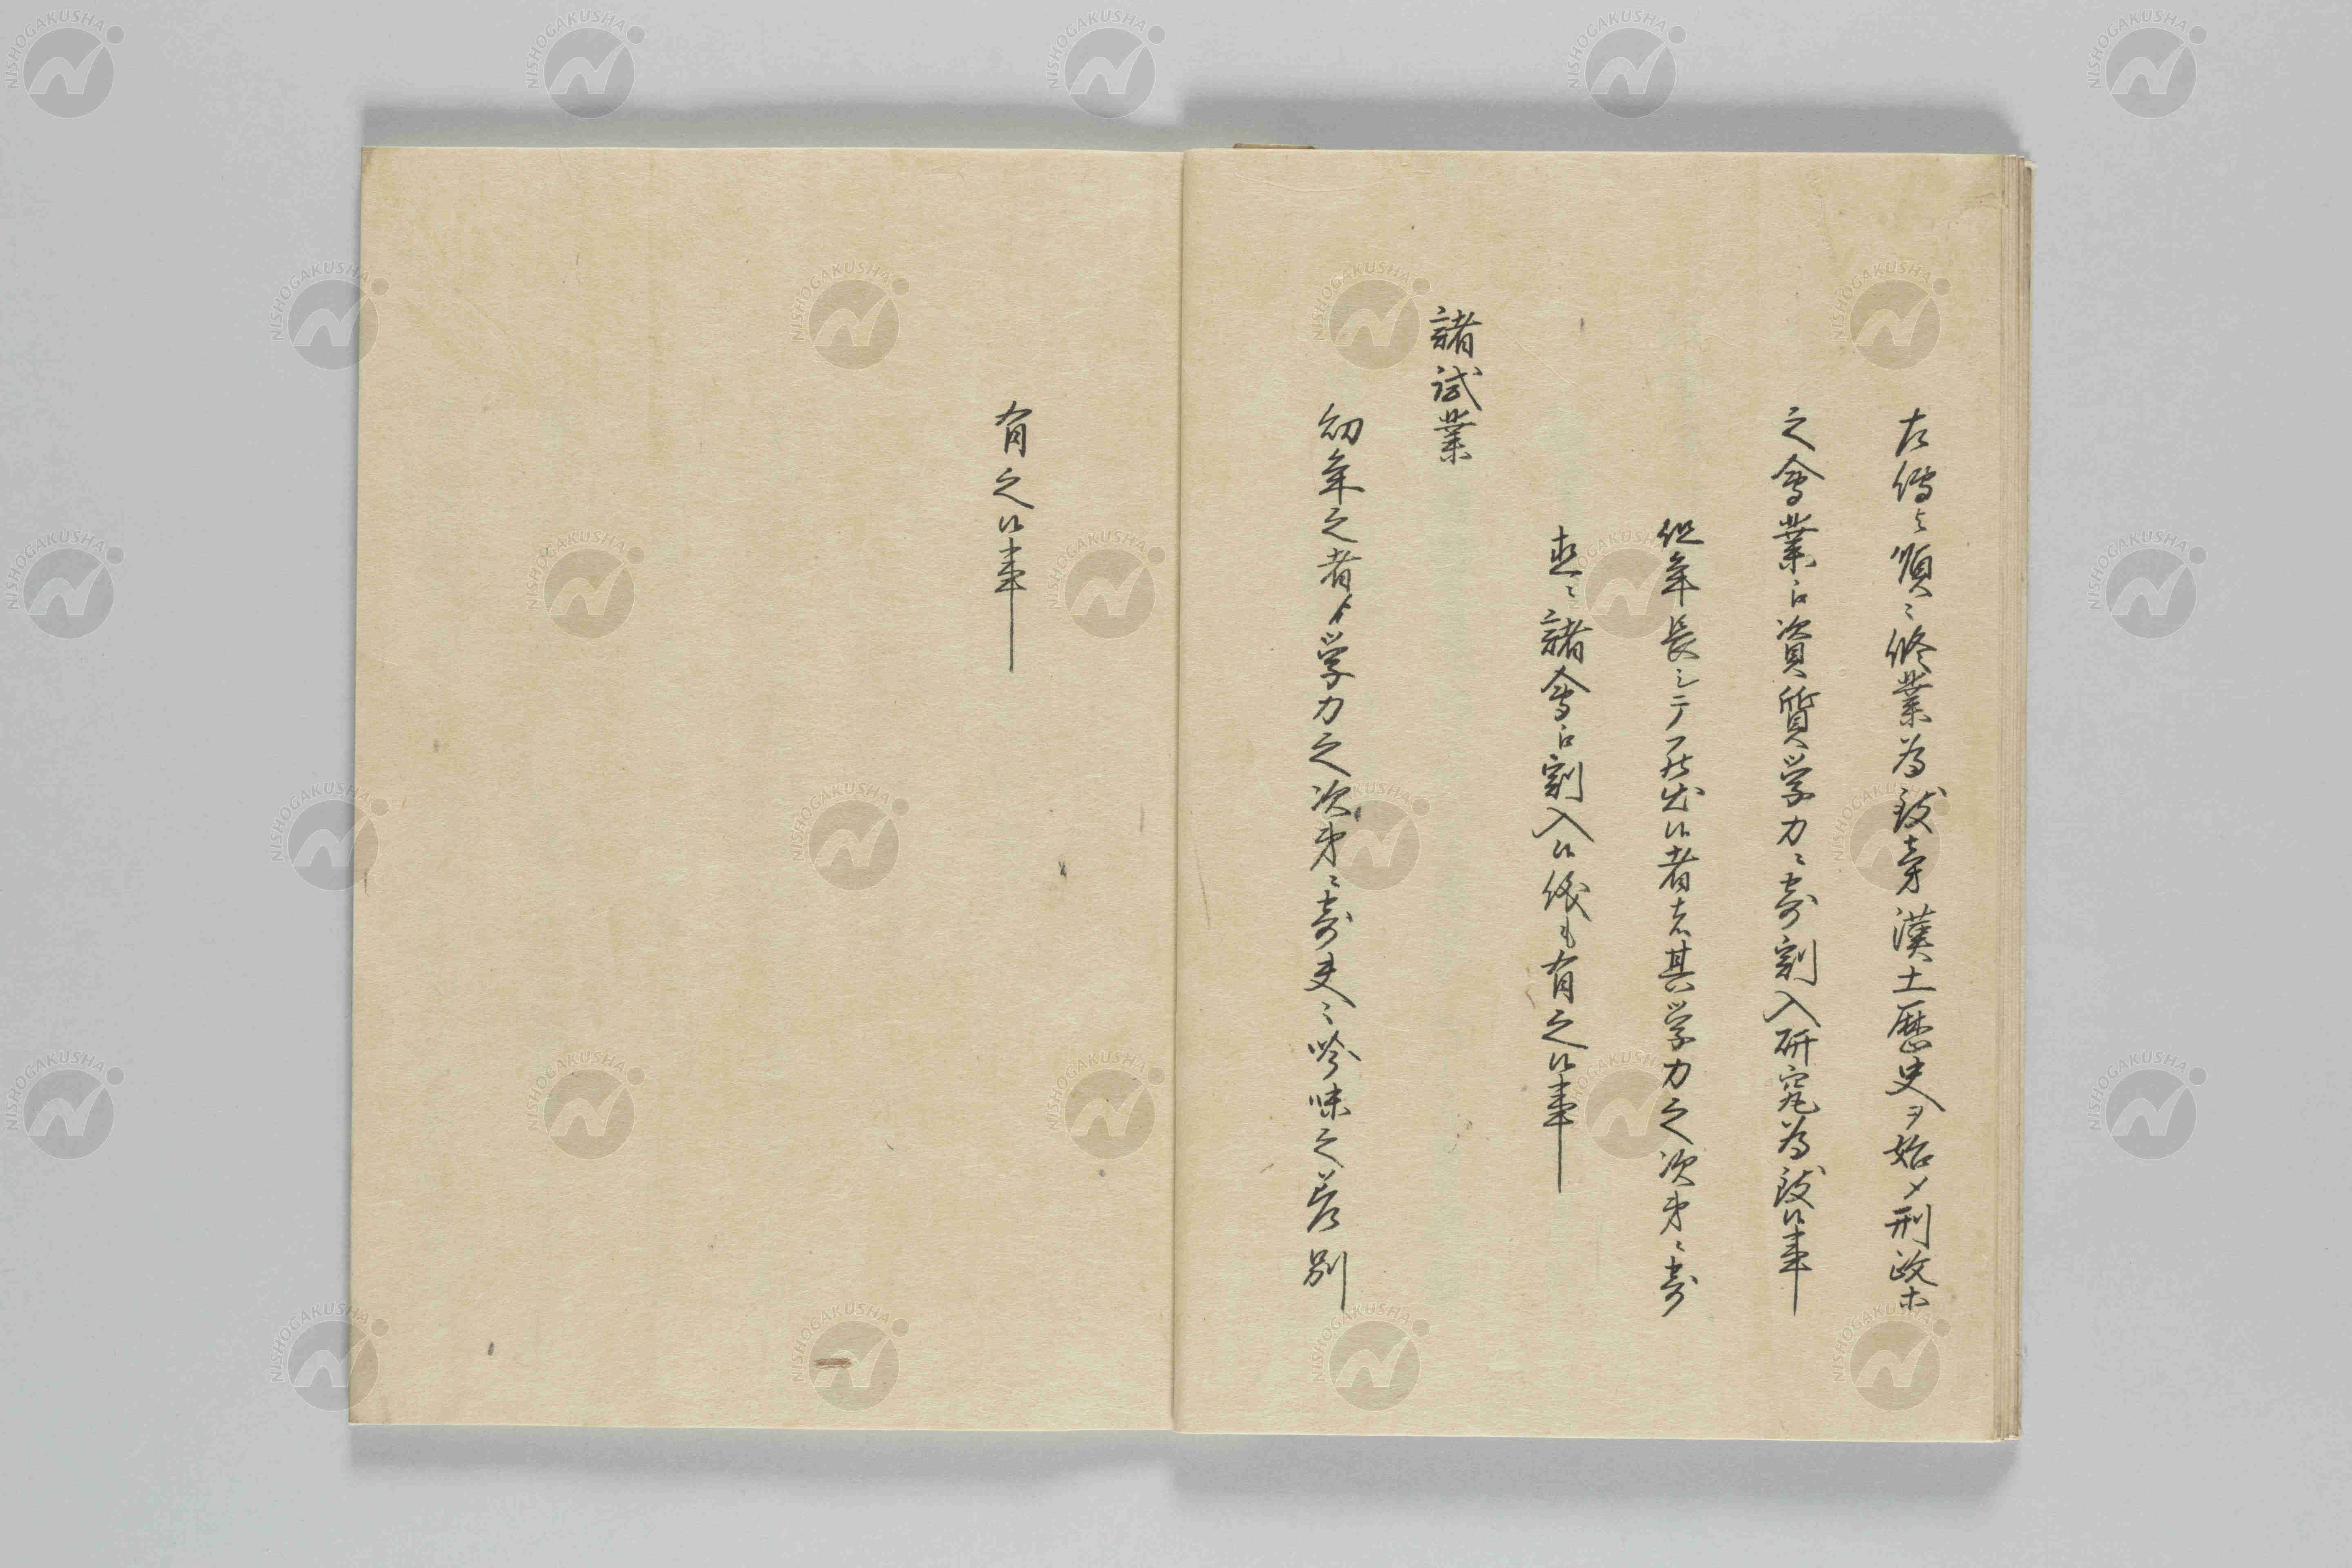 左傳与順ニ修業為致旁漢土歴史ヲ始メ刑政ホ
之會業江資質学力ニ寄割入研究為致候事
但年長シテ罷出候者者其学力之次第ニ寄
直ニ諸會江割入候儀も有之候事
諸試業
幼年之者ゟ学力之次第ニ寄夫々吟味之差別
有之候事
NISHOGAKUSHA